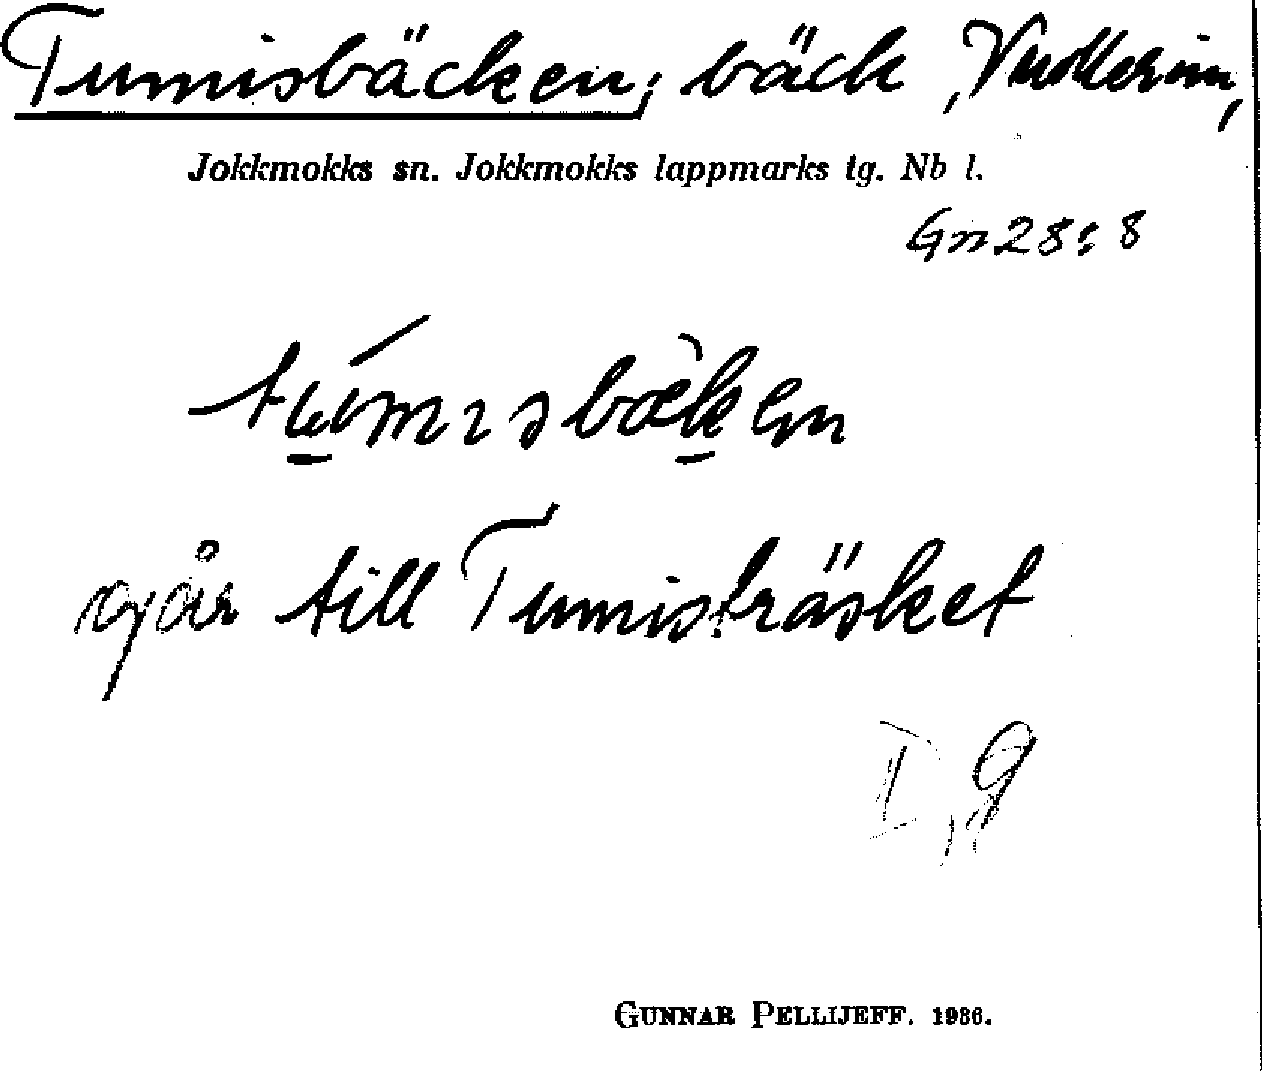 Tumisbäcken, bäck, Vuollerim,
Jokkmokks sn. Jokkmokks lappmarks tg. Nb l.
Gn 28:8
går till Tumisträsket
I, 9
GUNNAR PELLIJEFF. 1936.